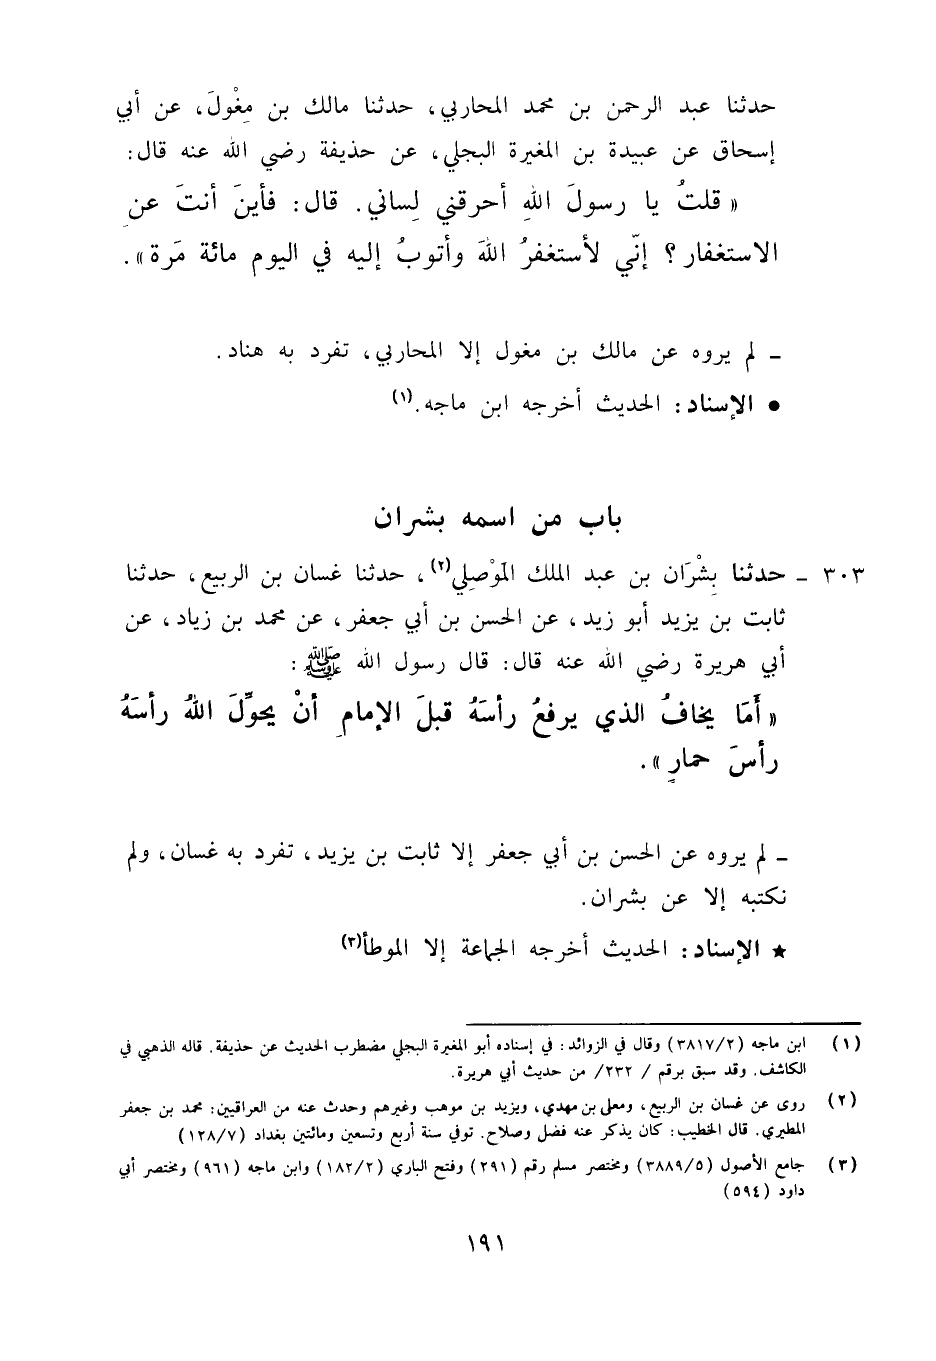 حدثنا عبد الرحمن بن محمد المحاربي، حدثنا مالك بن مِغْولَ، عن أبي
إسحاق عن عبيدة بن المغيرة البجلي، عن حذيفة رضي الله عنه قال:
« قلتُ يا رسولَ اللهِ أحرقني لِساني. قال: فأينَ أنتَ عنِ
الاستغفار؟ إنّي لأستغفرُ اللهَ وأتوبُ إليه في اليوم مائة مَرة».
ـ لم يروه عن مالك بن مغول إلا المحاربي، تفرد به هناد.
● الإسناد: الحديث أخرجه ابن ماجه.(١)
باب من اسمه بشران
٣٠٣ ـ حدثنا بِشْرَان بن عبد الملك المَوْصِلي(٢)، حدثنا غسان بن الربيع، حدثنا
ثابت بن يزيد أبو زيد، عن الحسن بن أبي جعفر، عن محمد بن زياد، عن
أبي هريرة رضي الله عنه قال: قال رسول الله ﷺ:
« أَمَا يخافُ الذي يرفعُ رأسَهُ قبلَ الإمامِ أنْ يحوِّلَ اللهُ رأسَهُ
رأسَ حمارٍ».
ـ لم يروه عن الحسن بن أبي جعفر إلا ثابت بن يزيد، تفرد به غسان، ولم
نكتبه إلا عن بشران.
★ الإسناد: الحديث أخرجه الجماعة إلا الموطأ(٣)
(١) ابن ماجه (٣٨١٧/٢) وقال في الزوائد: في إسناده أبو المغيرة البجلي مضطرب الحديث عن حذيفة. قاله الذهبي في
الكاشف. وقد سبق برقم / ٢٣٢/ من حديث أبي هريرة.
(٢) روى عن غسان بن الربيع، ومعلى بن مهدي، ويزيد بن موهب وغيرهم وحدث عنه من العراقيين: محمد بن جعفر
المطيري. قال الخطيب: كان يذكر عنه فضل وصلاح. توفي سنة أربع وتسعين ومائتين بغداد (١٢٨/٧)
(٣) جامع الأصول (٣٨٨٩/٥) ومختصر مسلم رقم (٢٩١) وفتح الباري (١٨٢/٢) وابن ماجه (٩٦١) ومختصر أبي
داود (٥٩٤)
١٩١